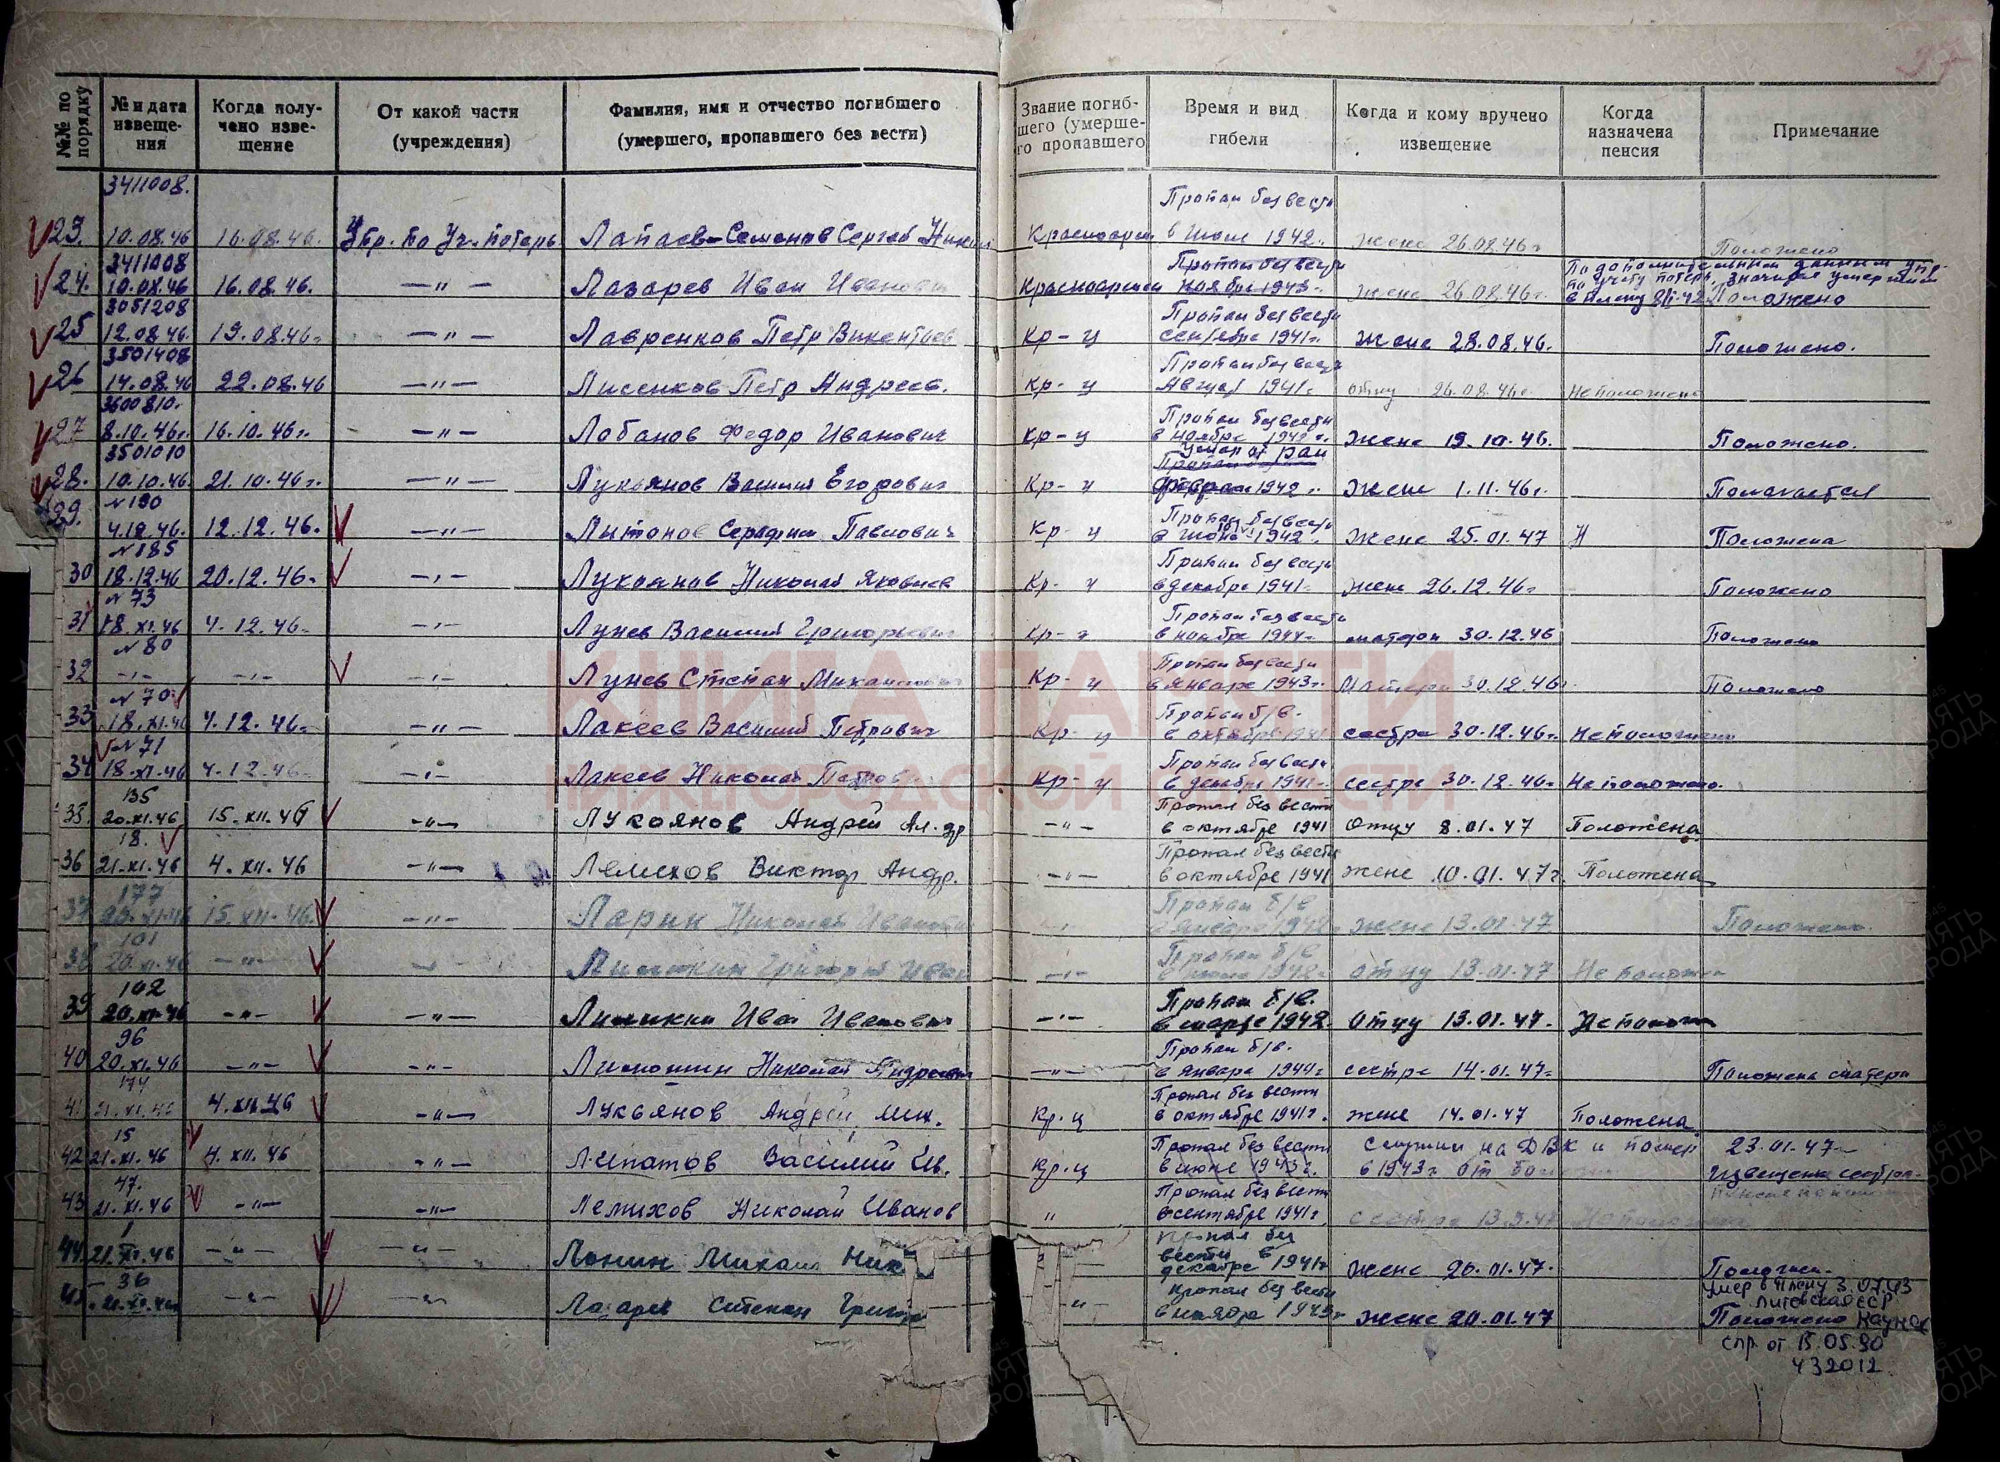 №№ по порядку
№ и дата извеще-ния
Когда полу-чено изве-щение
От какой части (учреждения)
Фамилия, имя и отчество погибшего (умершего, пропавшего без вести)
Звание погиб-шего (умерше-го пропавшего
Время и вид гибели
Когда и кому вручено извещение
Когда назначена пенсия
Примечание
3411008. Пропал без вести
23. 10.08.46 16.08.46. Упр. по Уч. потерь Лапаев-Семенов Сергей Красноарм в 1942г. жене 26.08.46г Положено
3411008 Пропал без вести По дополнительным данным
24. 10.08.46 16.08.46. —"— Лазарев Иван Иванович Красноармеец ноябре 1943г. жене 26.08.46г. в плену Положено
3051208 Пропал без вести
25 12.08.46. 19.08.46г —"— Лавренков Петр Викентьев Кр-ц 1941г. жене 28.08.46. Положено.
3501408 Пропал без вести
26 14.08.46 22.08.46 —"— Лисенков Петр Андреев. Кр-ц Август 1941г. отцу 26.08.46г Не положено
3600810.
27 8.10.46г. 16.10.46г. —"— Лобанов Федор Иванович Кр-ц Пропал без вести в ноябре 1942г. жене 19.10.46. Положено.
3501010 умер от ран
28. 10.10.46. 21.10.46г. —"— Лукьянов Василий Егорович Кр-ц 1942г. жене 1.11.46г. Полагается
№ 190 Пропал без вести
29. 4.12.46. 12.12.46. —"— Серафим Павлович Кр-ц в июне 1942. жене 25.01.47 Н Положена
№ 185 Пропал без вести
30 18.12.46 20.12.46. —"— Лукоянов Николай Яковлев Кр-ц в декабре 1941г. жене 26.12.46г Положено
№ 73 Пропал без вести
31 18.XI.46 4.12.46. —"— Лунев Василий Григорьевич Кр-ц в ноябре 1944г. матери 30.12.46 Положено
№ 80 Пропал без вести
32 —"— —"— —"— Лунев Степан Михайлович Кр-ц в январе 1943г. Матери 30.12.46г. Положено
№ 70 Пропал б/в.
33 18.XI.46 4.12.46г —"— Лакеев Василий Петрович Кр-ц в октябре 1941 сестре 30.12.46г. Не положено
№ 71 Пропал без вести
34 18.XI.46 4.12.46. —"— Лакеев Николай Петров Кр-ц в декабре 1941г. сестре 30.12.46г Не положено.
135 Пропал без вести
35. 20.XI.46 15.XII.46 —"— Лукоянов Андрей Ал-др —"— в октябре 1941 Отцу 8.01.47 Положена
18. Пропал без вести
36 21.XI.46 4.XII.46 —"— Лемехов Виктор Андр. —"— в октябре 1941 жене 10.01.47г. Положена
177 Пропал б/в
37 20.XI.46 15.XII.46. —"— Ларин Николай Иванович январе 1942 жене 13.01.47 Положено.
101 Пропал б/в
38 20.XI.46 —"— Григорий Иван —"— 1942г отцу 13.01.47 Не положен
102 Пропал б/в.
39 20.XI.46 —"— —"— Иван Иванович —"— в марте 1942 Отцу 13.01.47. Не полож
96 Пропал б/в.
40 20.XI.46 —"— —"— Николай Андреевич —"— в январе 1944г сестре 14.01.47г Положена матери
174 Пропал без вести
41 21.XI.46 4.XII.46 —"— Лукьянов Андрей Мих. Кр.ц в октябре 1941г. жене 14.01.47 Положена
15 Пропал без вести служил на ДВК и помер 23.01.47
42 21.XI.46 4.XII.46 —"— Липатов Василий Ив. Кр.ц в июне 1943г. в 1943г от Извещена сестра.
47. Пропал без вести
43 21.XI.46 —"— —"— Лемихов Николай Иванов " в сентябре 1941г сестре 13.3.47 Не положена
1 Пропал без
44. 21.XI.46 —"— —"— Лонин Михаил Ник вести в декабре 1941г жене 20.01.47. Положен.
36 Пропал без вести умер в плену 3.07.43 Литовская ССР
45. 21.XI.46 —"— —"— Лазарев Степан Григор —"— в ноябре 1943г жене 20.01.47 Положено Каунас
спр. от 15.05.90
432012
КНИГА ПАМЯТИ
НИЖЕГОРОДСКОЙ ОБЛАСТИ
ПАМЯТЬ НАРОДА